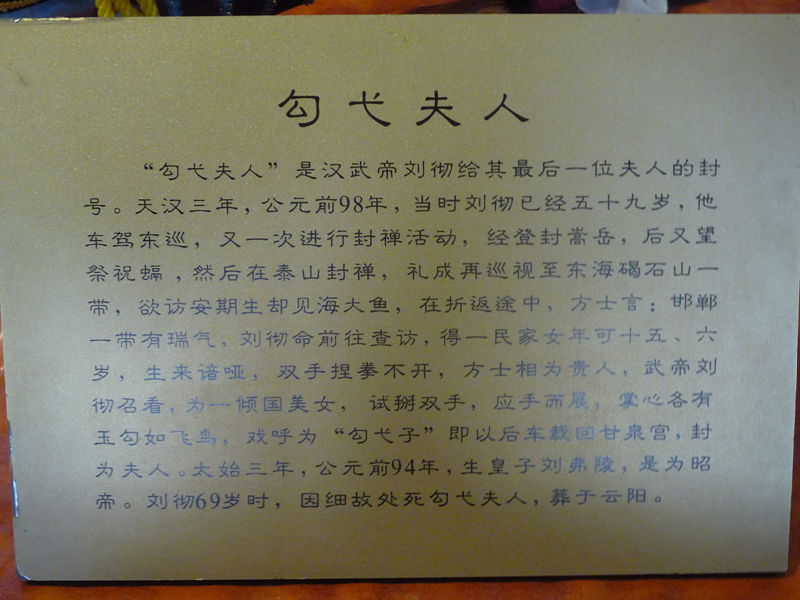 勾弋夫人
“勾弋夫人”是汉武帝刘彻给其最后一位夫人的封
号。天汉三年，公元前98年，当时刘彻已经五十九岁，他
车驾东巡，又一次进行封禅活动，经登封嵩岳，后又望
祭祝螎，然后在泰山封禅，礼成再巡视至东海碣石山一
带，欲访安期生却见海大鱼，在折返途中，方士言：邯郸
一带有瑞气，刘彻命前往查访，得一民家女年可十五、六
岁，生来谙哑，双手捏拳不开，方士相为贵人，武帝刘
彻召看，为一倾国美女，试掰双手，应手而展，掌心各有
玉勾如飞鸟，戏呼为“勾弋子”即以后车载回甘泉宫，封
为夫人。太始三年，公元前94年，生皇子刘弗陵，是为昭
帝。刘彻69岁时，因细故处死勾弋夫人，葬于云阳。